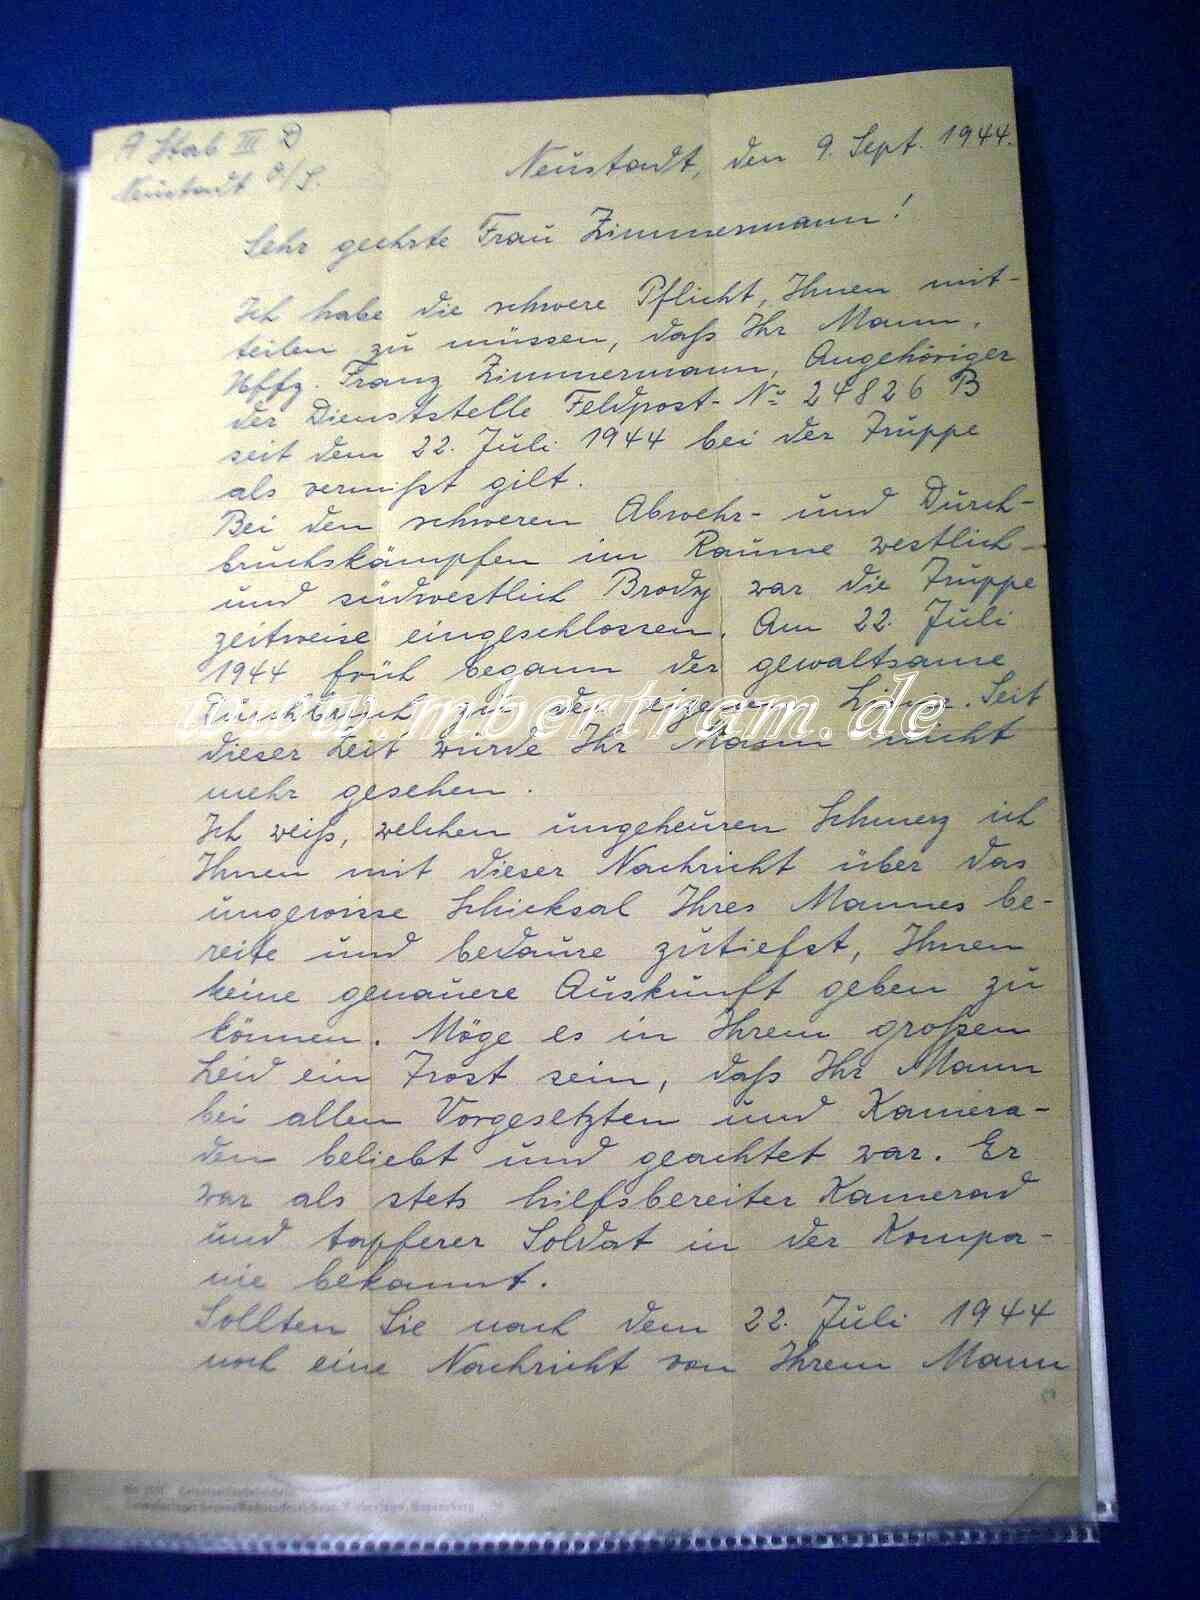 A Stab III D
Neustadt O/S.
Neustadt, den 9. Sept. 1944.
Sehr geehrte Frau Zimmermann!
Ich habe die schwere Pflicht, Ihnen mit-
teilen zu müssen, daß Ihr Mann,
Uffz. Franz Zimmermann, Angehöriger
der Dienststelle Feldpost-Nr 24826 B
seit dem 22. Juli 1944 bei der Truppe
als vermißt gilt.
Bei den schweren Abwehr- und Durch-
bruchskämpfen im Raume westlich
und südwestlich Brody war die Truppe
zeitweise eingeschlossen. Am 22. Juli
1944 früh begann der gewaltsame
Durchbruch zu den eigenen Linien. Seit
www.mbertram.de
dieser Zeit wurde Ihr Mann nicht
mehr gesehen.
Ich weiß, welchen ungeheuren Schmerz ich
Ihnen mit dieser Nachricht über das
ungewisse Schicksal Ihres Mannes be-
reite und bedaure zutiefst, Ihnen
keine genauere Auskunft geben zu
können. Möge es in Ihrem großen
Leid ein Trost sein, daß Ihr Mann
bei allen Vorgesetzten und Kamera-
den beliebt und geachtet war. Er
war als stets hilfsbereiter Kamerad
und tapferer Soldat in der Kompa-
nie bekannt.
Sollten Sie nach dem 22. Juli 1944
noch eine Nachricht von Ihrem Mann